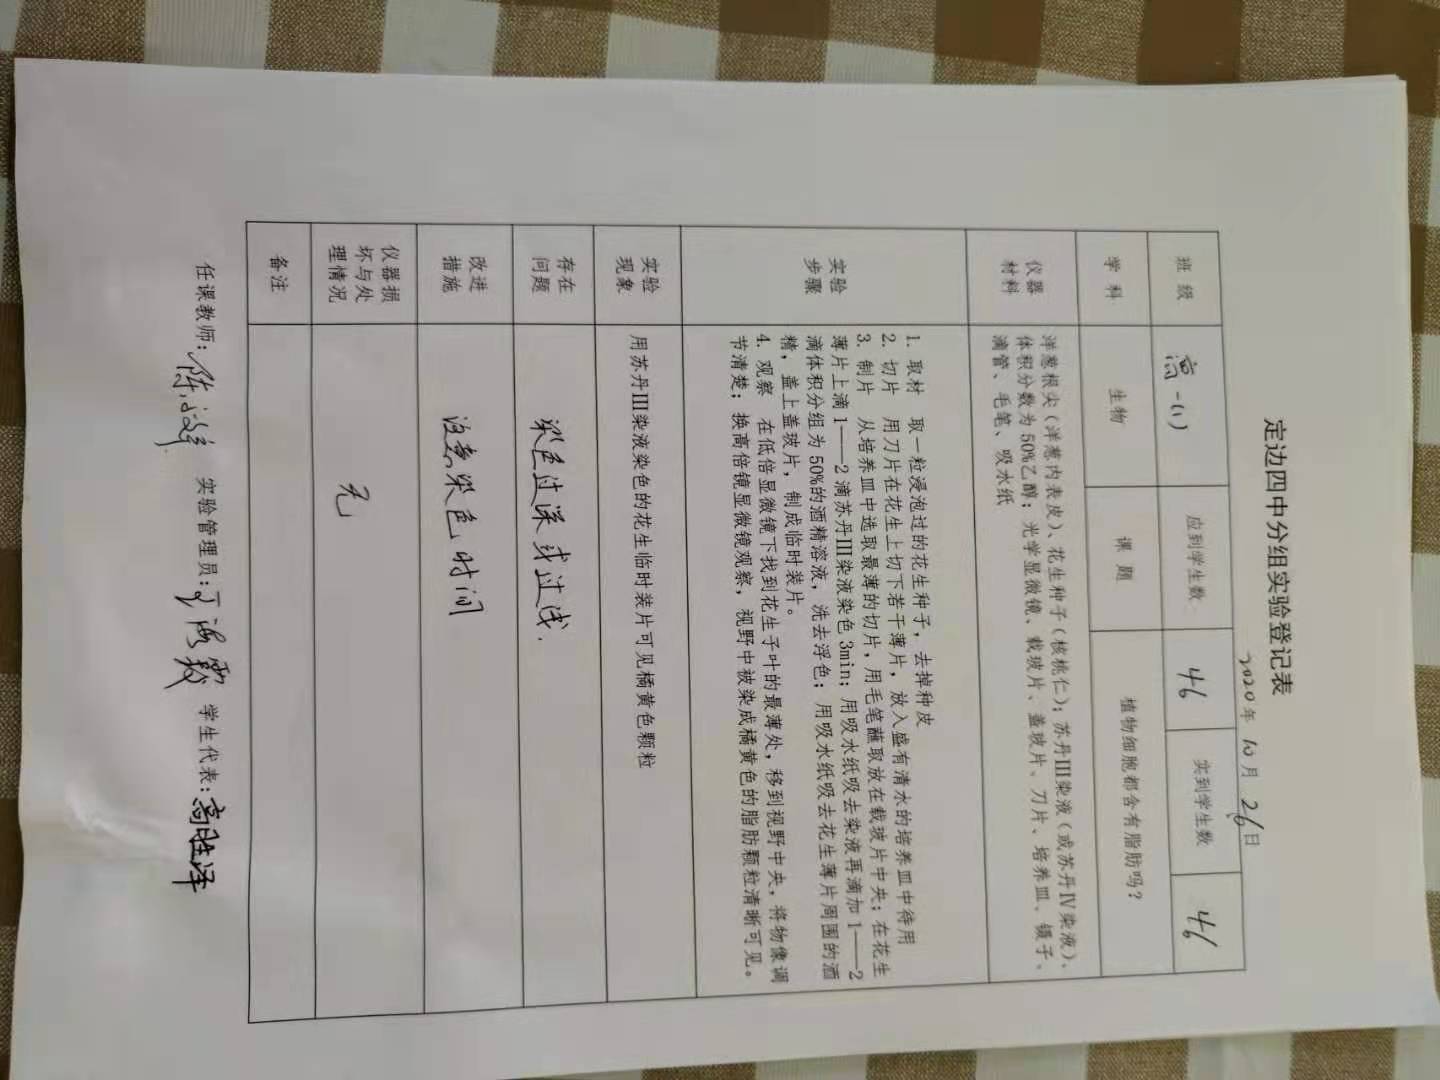 定边四中分组实验登记表
2020年10月26日
班级 高一(1) 应到学生数 46 实到学生数 46
学科 生物 课题 植物细胞都含有脂肪吗？
仪器
材料
洋葱根尖（洋葱内表皮）、花生种子（核桃仁）；苏丹Ⅲ染液（或苏丹Ⅳ染液）、
体积分数为50%乙醇；光学显微镜、载玻片、盖玻片、刀片、培养皿、镊子、
滴管、毛笔、吸水纸
实验
步骤
1. 取材 取一粒浸泡过的花生种子，去掉种皮
2. 切片 用刀片在花生上切下若干薄片，放入盛有清水的培养皿中待用
3. 制片 从培养皿中选取最薄的切片，用毛笔蘸取放在载玻片中央；在花生
薄片上滴1——2滴苏丹Ⅲ染液染色3min；用吸水纸吸去染液再滴加1——2
滴体积分组为50%的酒精溶液，洗去浮色；用吸水纸吸去花生薄片周围的酒
精，盖上盖玻片，制成临时装片。
4. 观察 在低倍显微镜下找到花生子叶的最薄处，移到视野中央，将物像调
节清楚；换高倍镜显微镜观察，视野中被染成橘黄色的脂肪颗粒清晰可见。
实验
现象
用苏丹Ⅲ染液染色的花生临时装片可见橘黄色颗粒
存在
问题
染色过深或过浅.
改进
措施
注意染色时间
仪器损
坏与处
理情况
无
备注
任课教师： 实验管理员： 学生代表：高胜泽